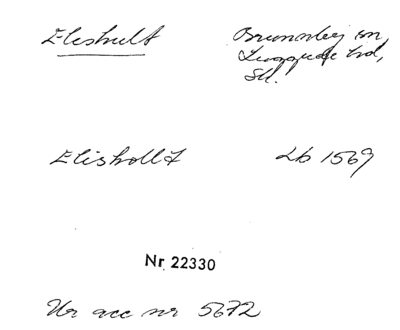 Eleshult Brunnby sn,
Luggude hd,
Sk.
Elishollt Lb 1569
Nr 22330
Ur acc nr 5672